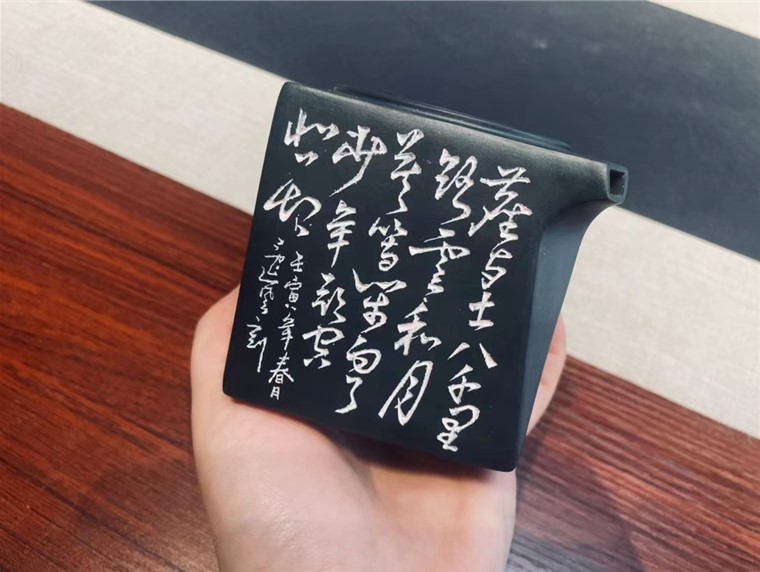 塵与土八千里
路雲和月
莫等閑白了
少年頭空
悲切
壬寅年春月